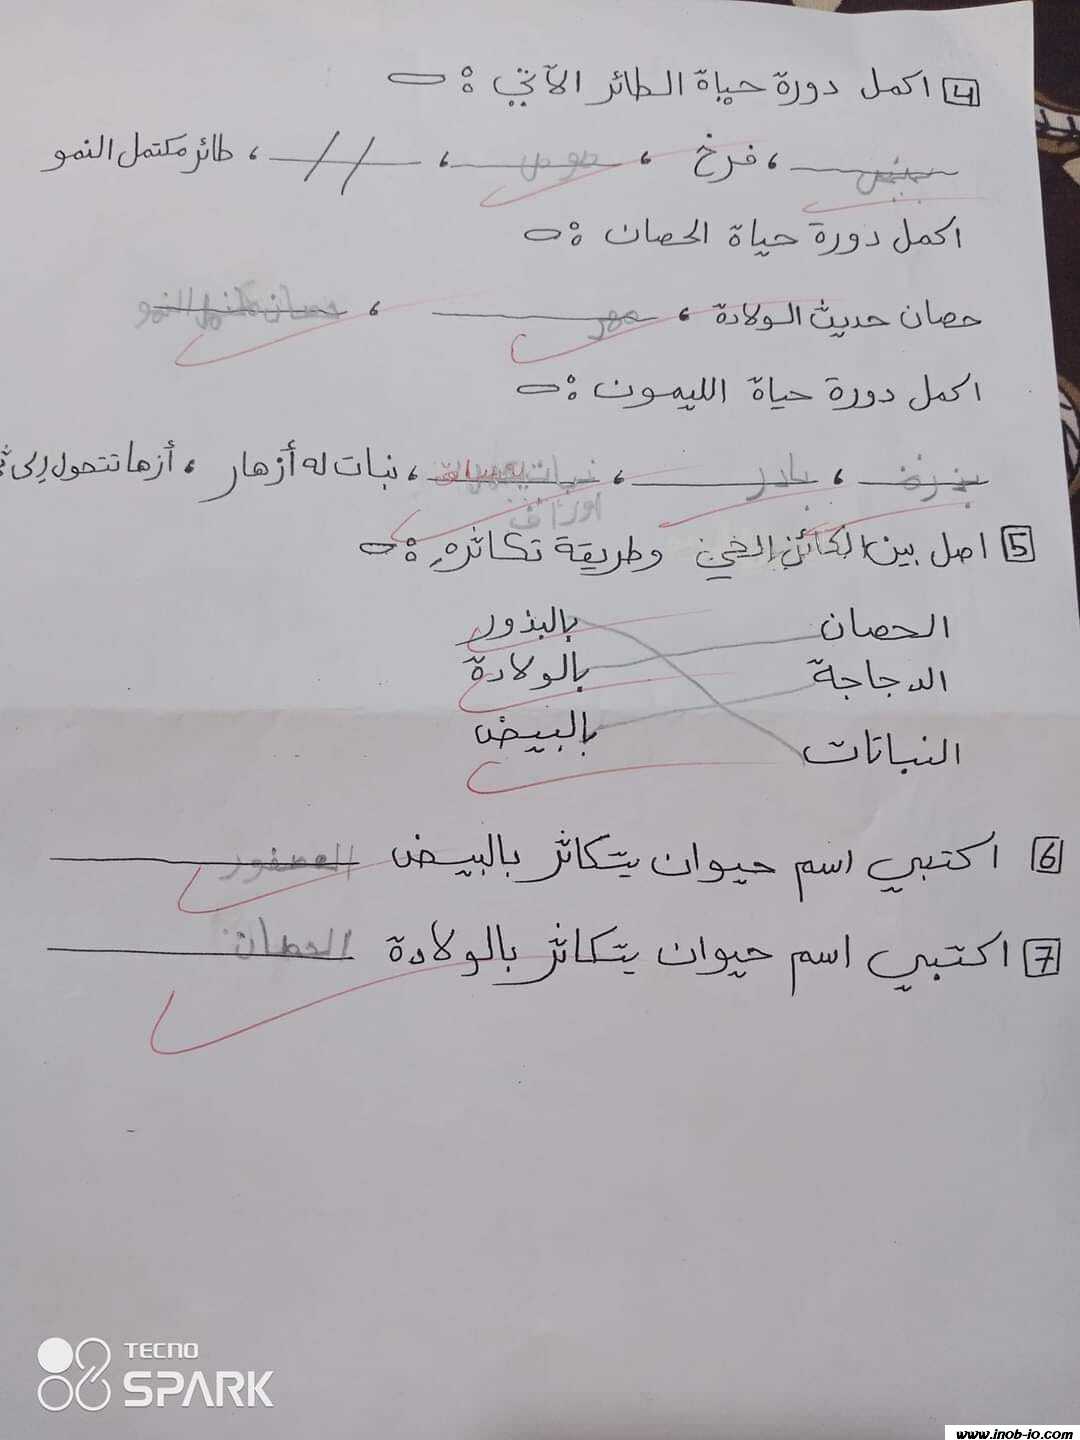 4 اكمل دورة حياة الطائر الآتي :
بيض ، فرخ ، صوص ، // ، طائر مكتمل النمو
اكمل دورة حياة الحصان :
حصان حديث الولادة ، مهر ، حصان مكتمل النمو
اكمل دورة حياة الليمون :
، بادر ، نبات ، نبات له أزهار ، أزهار تتحول إلى
اوراق
5 اصل بين الكائن الحي وطريقة تكاثره :
الحصان بالبذور
الدجاجة بالولادة
النباتات بالبيض
6 اكتبي اسم حيوان يتكاثر بالبيض العصفور
7 اكتبي اسم حيوان يتكاثر بالولادة الحصان
TECNO
SPARK
www.inob-io.com